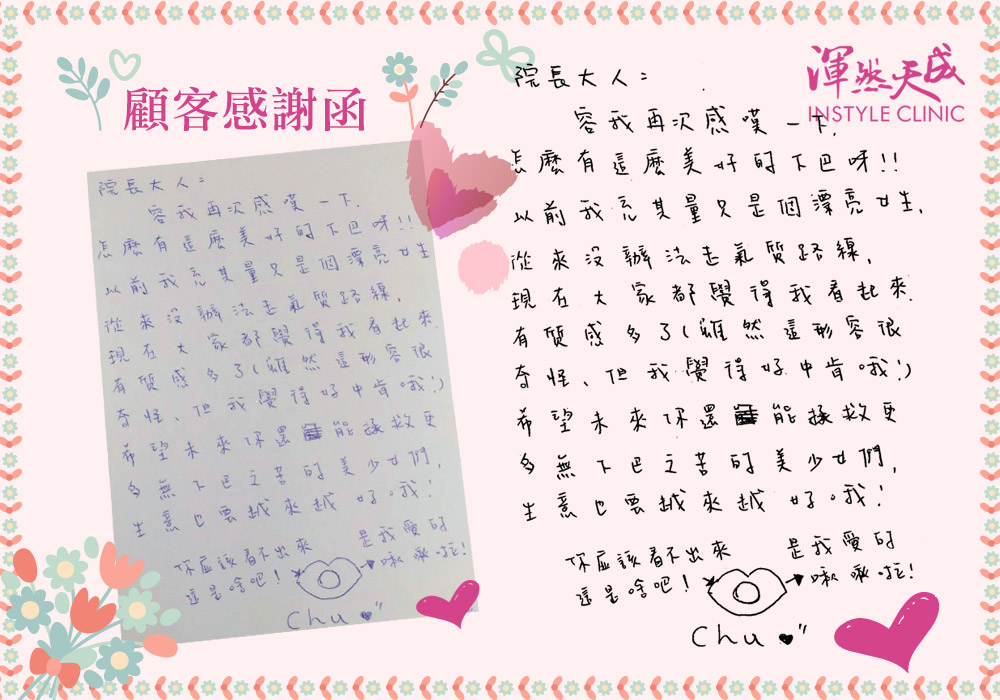 顧客感謝函
渾然天成
INSTYLE CLINIC
院長大人：
容我再次感嘆一下.
怎麼有這麼美好的下巴呀!!
以前我充其量只是個漂亮女生
從來沒辦法走氣質路線,
現在大家都覺得我看起來
有質感多了(雖然這形容很
奇怪、但我覺得好中肯哦!)
希望未來你還能拯救更
多無下巴之苦的美少女們,
生意也要越來越好哦!
你應該看不出來
這是啥吧!
是我愛的
啾啾啦!
Chu
院長大人：
容我再次感嘆一下.
怎麼有這麼美好的下巴呀!!
以前我充其量只是個漂亮女生,
從來沒辦法走氣質路線,
現在大家都覺得我看起來.
有質感多了(雖然這形容很
奇怪、但我覺得好中肯哦!)
希望未來你還能拯救更
多無下巴之苦的美少女們,
生意也要越來越好。哦!
你應該看不出來
這是啥吧!
是我愛的
啾啾啦!
Chu